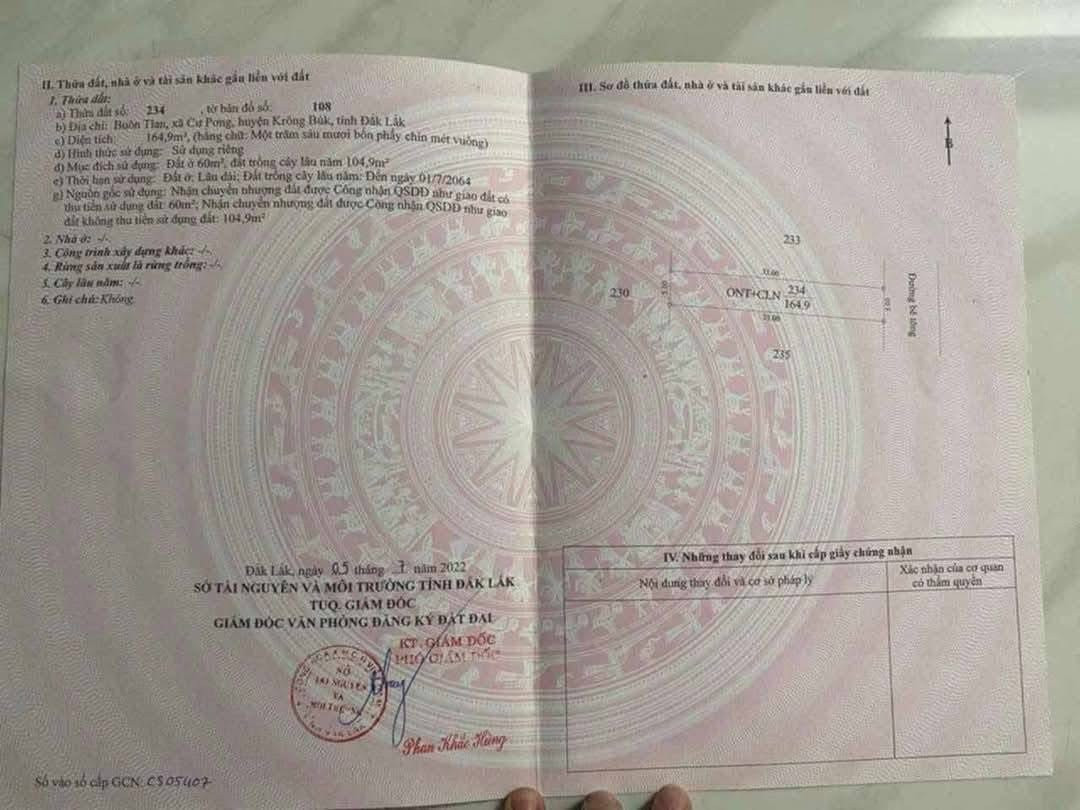 II. Thửa đất, nhà ở và tài sản khác gắn liền với đất
1. Thửa đất:
a) Thửa đất số: 234 , tờ bản đồ số: 108
b) Địa chỉ: Buôn Tlan, xã Cư Pơng, huyện Krông Búk, tỉnh Đắk Lắk
c) Diện tích: 164,9m², (bằng chữ: Một trăm sáu mươi bốn phẩy chín mét vuông)
d) Hình thức sử dụng: Sử dụng riêng
đ) Mục đích sử dụng: Đất ở 60m², đất trồng cây lâu năm 104,9m²
e) Thời hạn sử dụng: Đất ở: Lâu dài; Đất trồng cây lâu năm: Đến ngày 01/7/2064
g) Nguồn gốc sử dụng: Nhận chuyển nhượng đất được Công nhận QSDĐ như giao đất có
thu tiền sử dụng đất: 60m²; Nhận chuyển nhượng đất được Công nhận QSDĐ như giao
đất không thu tiền sử dụng đất: 104,9m²
2. Nhà ở: -/-
3. Công trình xây dựng khác: -/-
4. Rừng sản xuất là rừng trồng: -/-
5. Cây lâu năm: -/-
6. Ghi chú: Không.
Đắk Lắk, ngày 05 tháng 7 năm 2022
SỞ TÀI NGUYÊN VÀ MÔI TRƯỜNG TỈNH ĐẮK LẮK
TUQ. GIÁM ĐỐC
GIÁM ĐỐC VĂN PHÒNG ĐĂNG KÝ ĐẤT ĐAI
KT. GIÁM ĐỐC
PHÓ GIÁM ĐỐC
SỞ
TÀI NGUYÊN
VÀ
MÔI TRƯỜNG
Phan Khắc Hùng
Số vào sổ cấp GCN: CS05407
III. Sơ đồ thửa đất, nhà ở và tài sản khác gắn liền với đất
B
233
33.00
230
5.00
ONT+CLN 234
164.9
5.00
Đường bê tông
33.00
235
IV. Những thay đổi sau khi cấp giấy chứng nhận
Nội dung thay đổi và cơ sở pháp lý
Xác nhận của cơ quan
có thẩm quyền